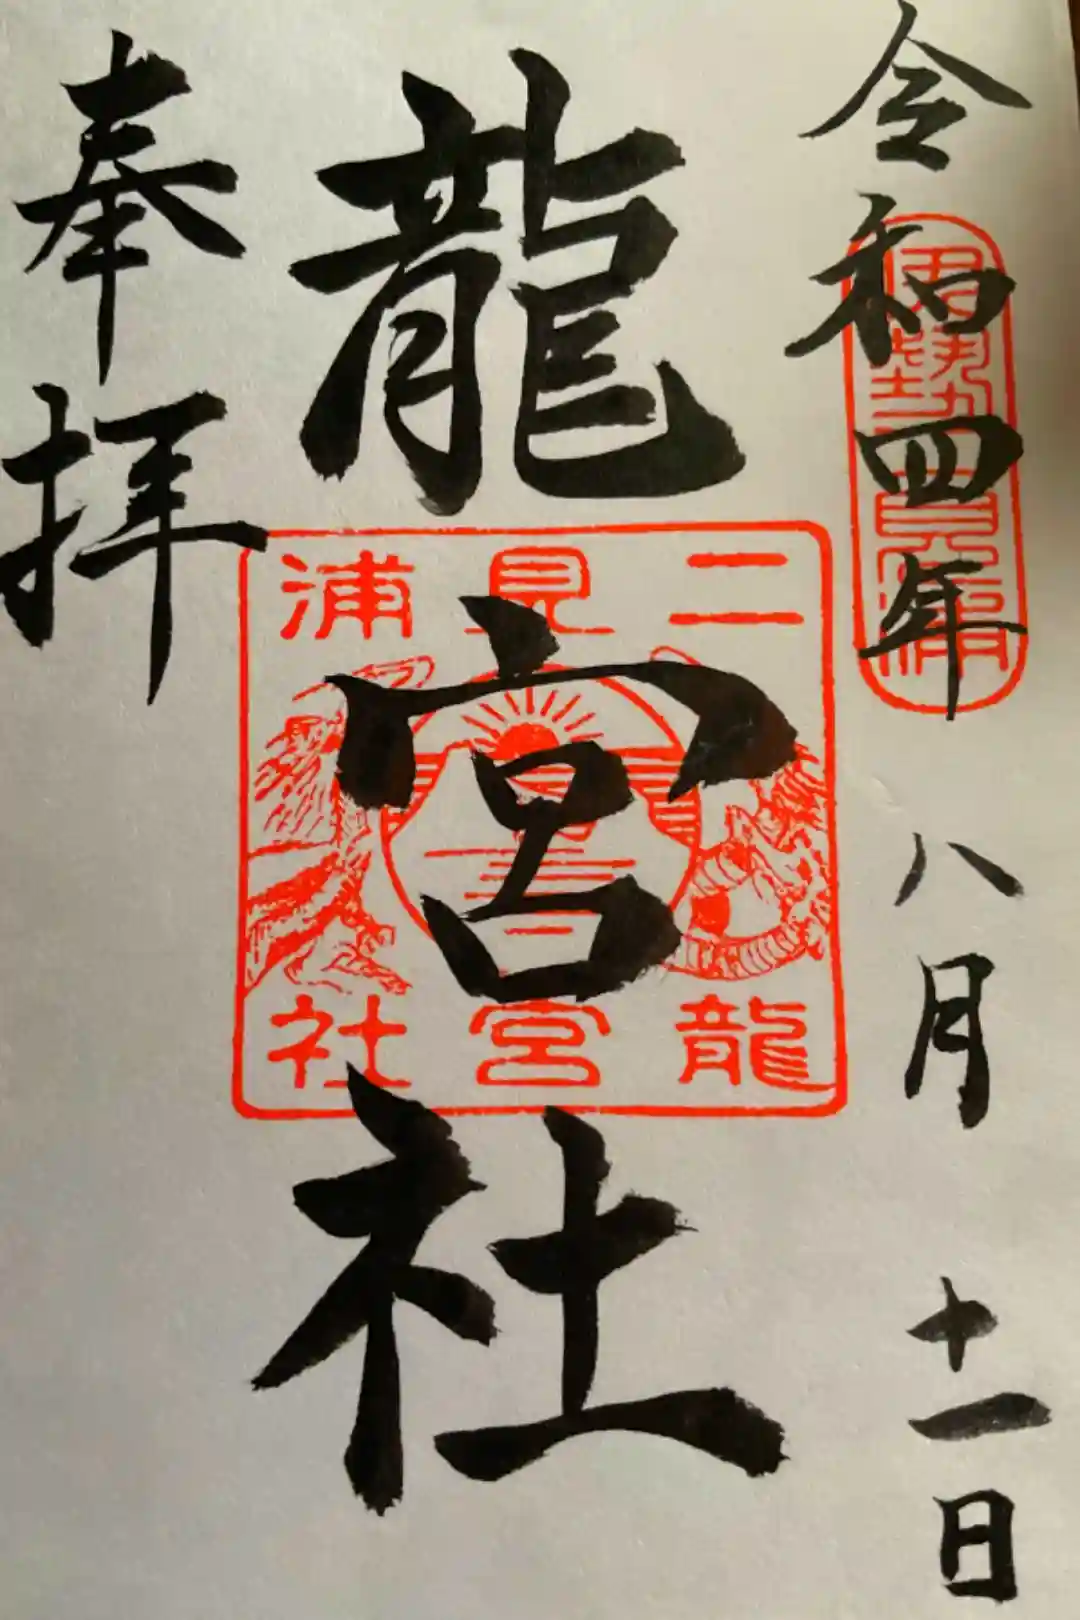 令和四年八月十一日
伊勢二見浦
龍宮社
二見浦
龍宮社
奉拝